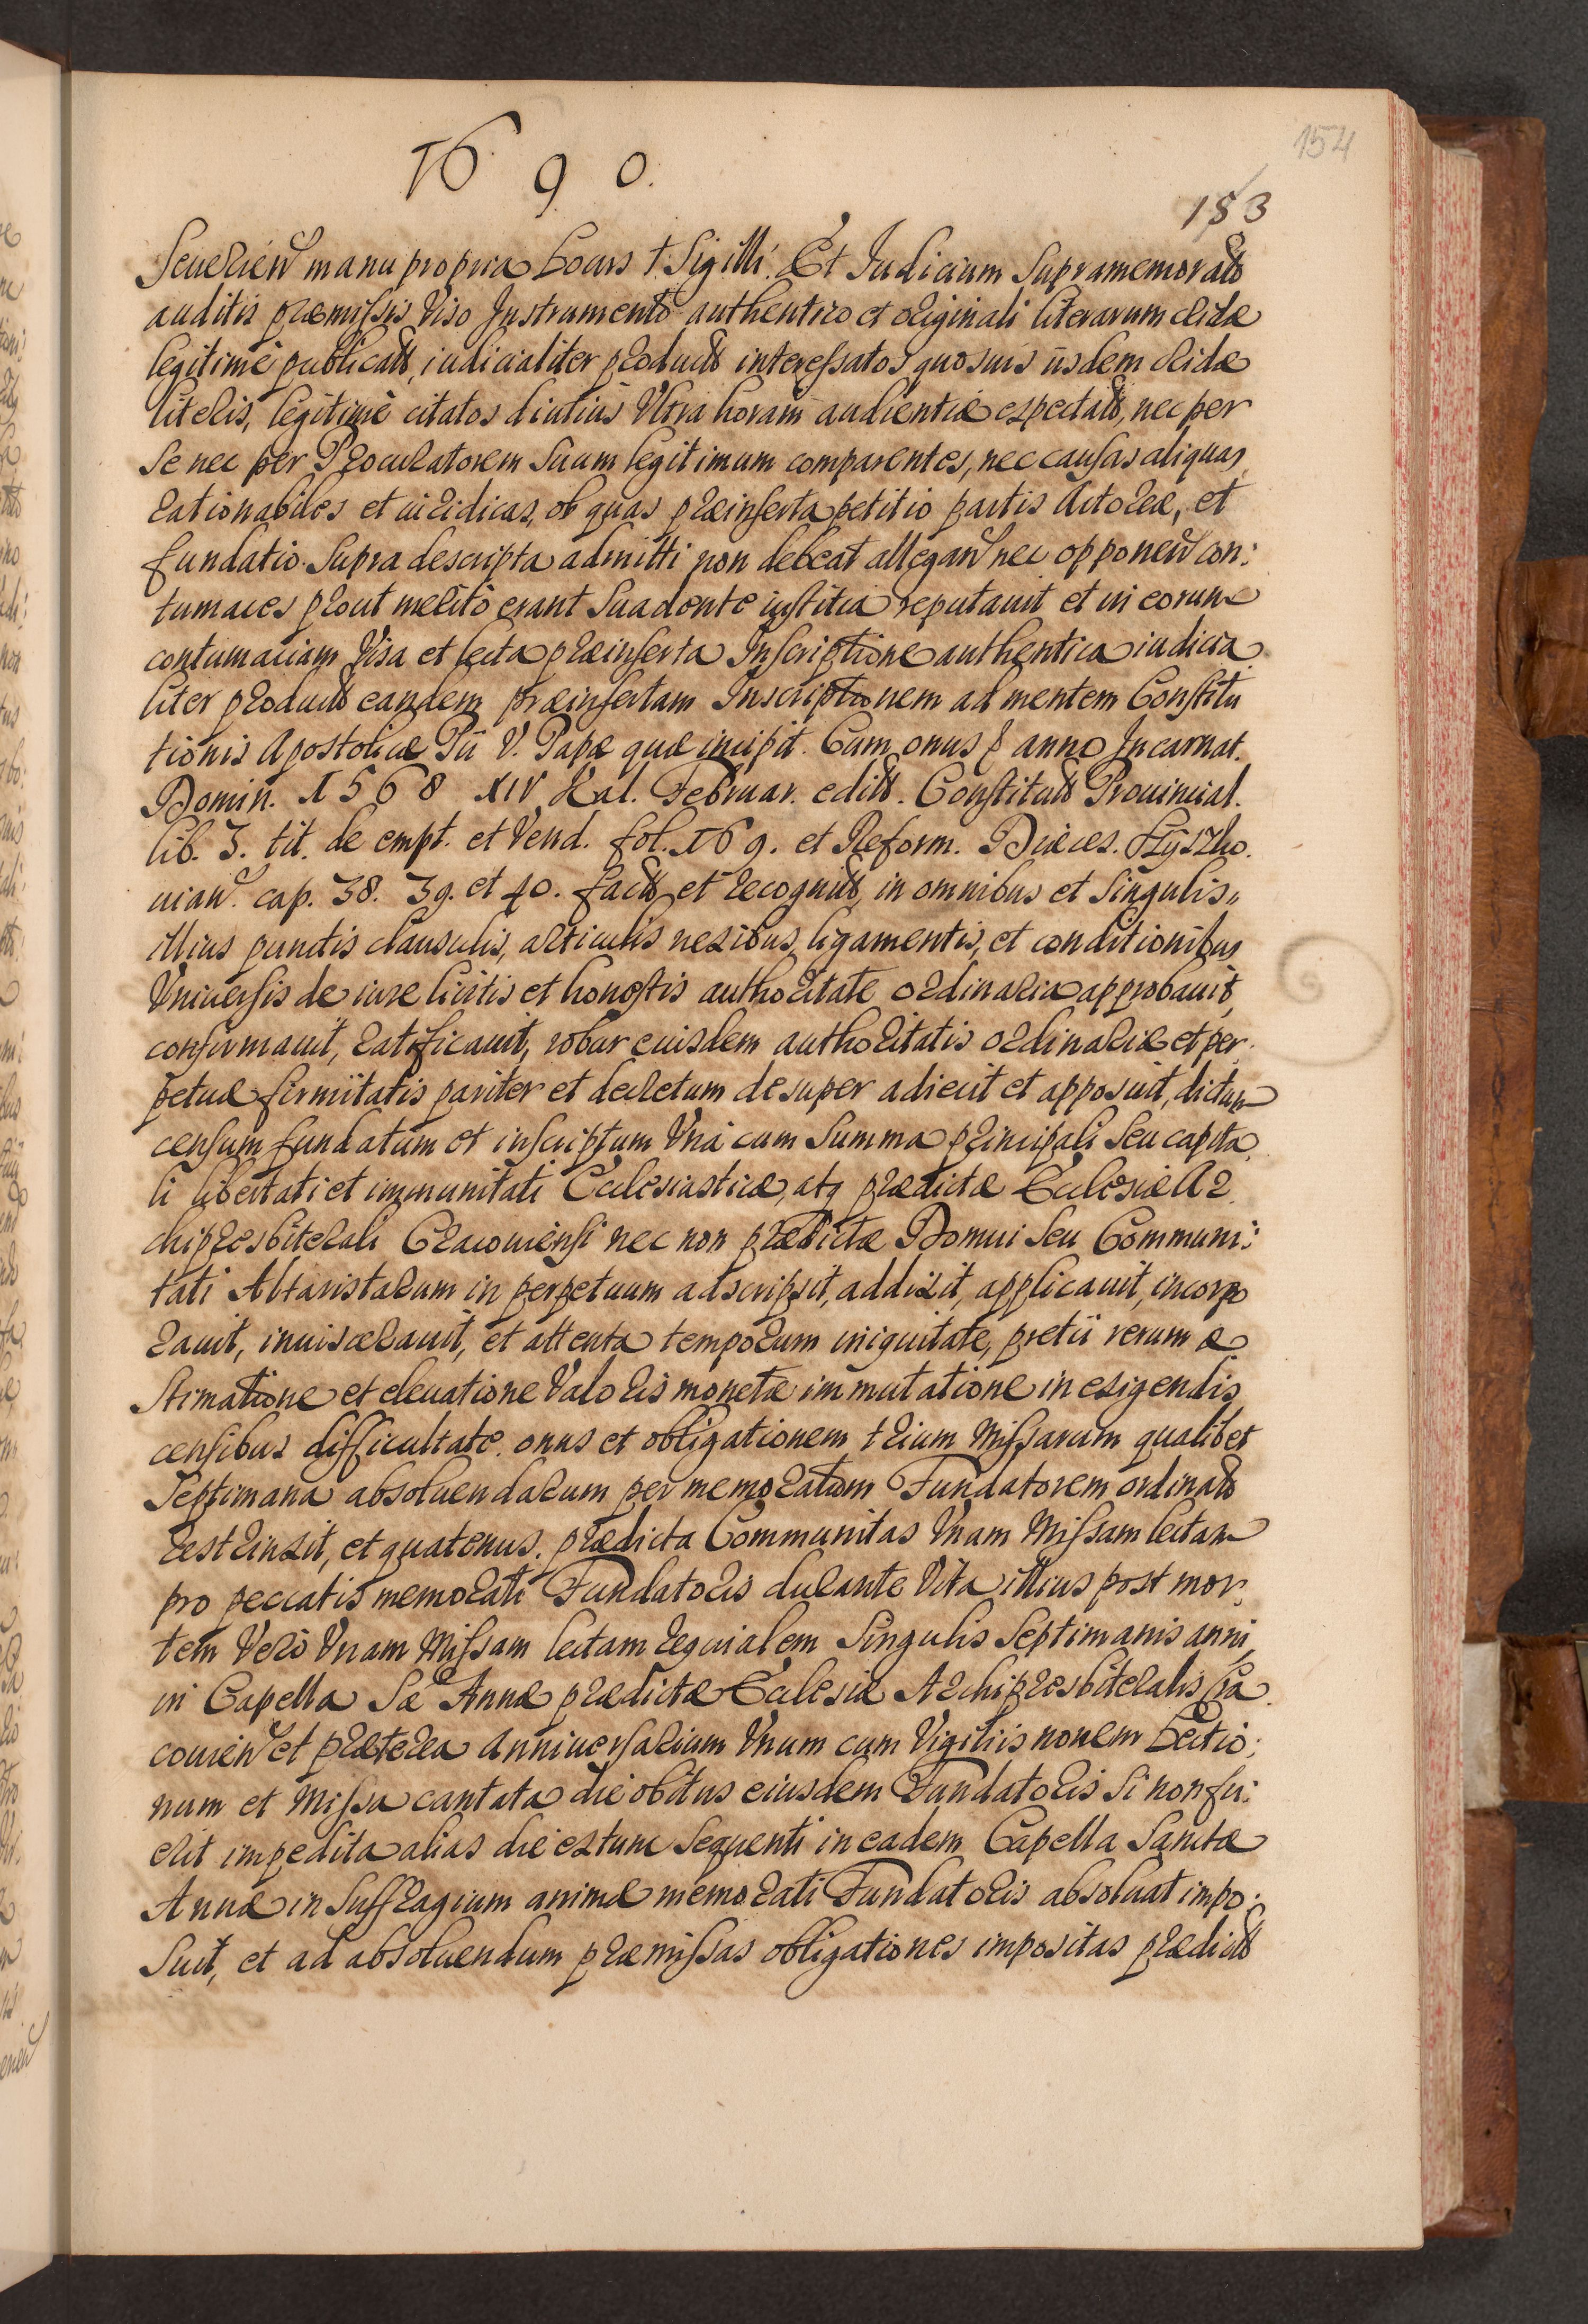 154
1690.
153
Seuerien manu propria Locus † Sigilli. Et Iudicium Supramemorato
auditis præmissis Viso Instrumento authentico et originali literarum cridæ
legitimè publicato, iudicialiter producto interessatos quosuis iisdem cridæ
literis, legitimè citatos diutius Vltra horam audientiæ expectato, nec per
Se nec per Procuratorem Suum legitimum comparentes, nec causas aliquas
rationabiles et iuridicas, ob quas præinserta petitio partis Actoreæ, et
fundatio Supra descripta admitti non debeat allegan nec opponen con:
tumaces prout meritò erant Suadente iustitia reputauit et in eorum
contumaciam Visa et lecta præinserta Inscriptione authentica iudicia
liter producto eandem præinsertam Inscriptionem ad mentem Constitu
tionis Apostolicæ Pii V. Papæ quæ incipit. Cum onus p anno Incarnat.
Domin. 1568 XIV Kal. Februar. edito. Constituto Prouincial.
lib. 3. tit. de empt. et Vend. fol. 169. et Reform. Diæces. Szyszko.
uian. cap. 38. 39. et 40. facto et recognito, in omnibus et Singulis
illius punctis clausulis, articulis nexibus, ligamentis, et conditionibus
Vniuersis de iure licitis et honestis authoritate ordinaria approbauit,
confirmauit, ratificauit, robur eiusdem authoritatis ordinariæ et per
petuæ firmitatis pariter et decretum desuper adiecit et apposuit, dictum
censum fundatum et inscriptum Vnà cum Summa principali Seu capita
li libertati et immunitati Ecclesiasticæ, atq prædictæ Ecclesiæ Ar
chipresbiterali Cracouiensi nec non prædictæ Domui Seu Communi:
tati Altaristarum in perpetuum adscripsit, addixit, applicauit, incorpo
rauit, inuiscerauit, et attenta temporum iniquitate, pretii rerum æ
Stimatione et eleuatione Valoris monetæ immutatione in exigendis
censibus difficultate onus et obligationem trium Missarum qualibet
Septimana absoluendarum per memoratum Fundatorem ordinato
restrinxit, et quatenus prædicta Communitas Vnam Missam lectam
pro peccatis memorati Fundatoris durante Vita illius post mor
tem Verò Vnam Missam lectam requialem Singulis Septimanis anni
in Capella Sæ Annæ prædictæ Ecclesiæ Archipresbiteralis Cra
couien et præterea Anniuersarium Vnum cum Vigiliis nouem Lectio:
num et Missa cantata die obitus eiusdem Fundatoris Si non fu:
erit impedita alias die extunc Sequenti in eadem Capella Sanctæ
Annæ in Suffragium animæ memorati Fundatoris absoluat impo:
Suit, et ad absoluendum præmissas obligationes impositas prædicto